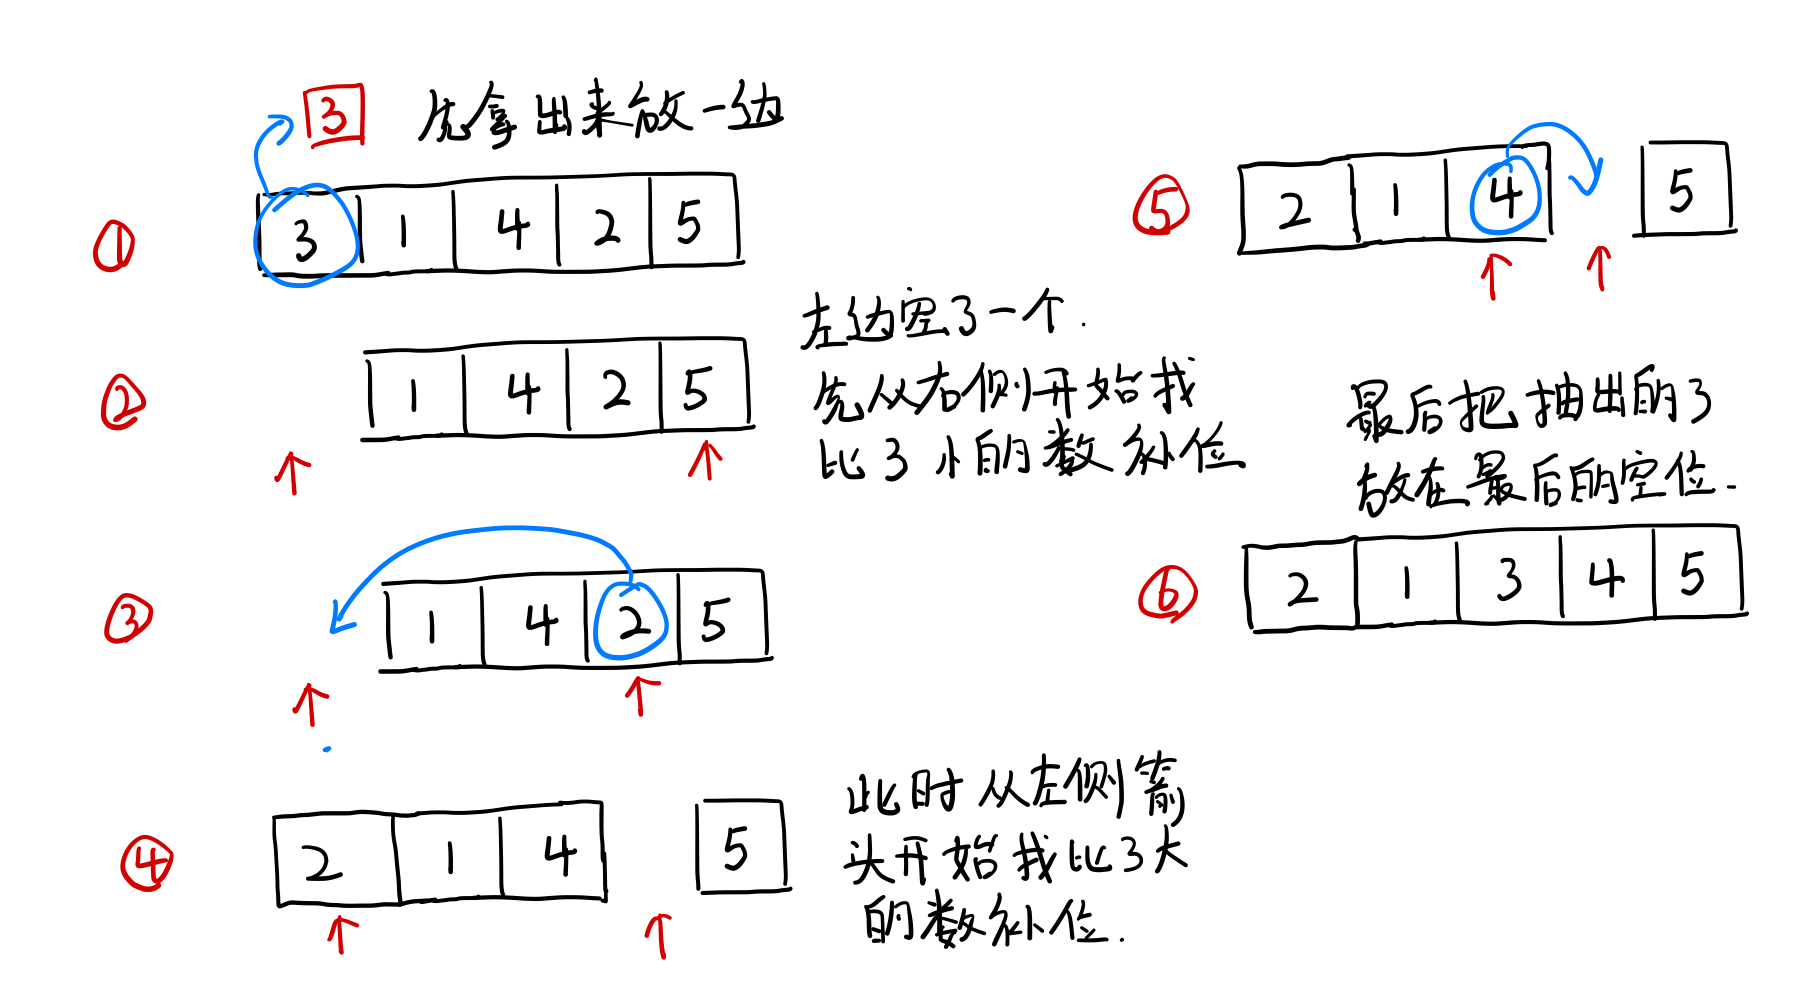 3 先拿出来放一边
① 3 1 4 2 5
左边空了一个.
② 1 4 2 5
先从右侧开始找
比3小的数补位
③ 1 4 2 5
④ 2 1 4 5
此时从左侧箭
头开始找比3大
的数补位.
⑤ 2 1 4 5
最后把抽出的3
放在最后的空位.
⑥ 2 1 3 4 5